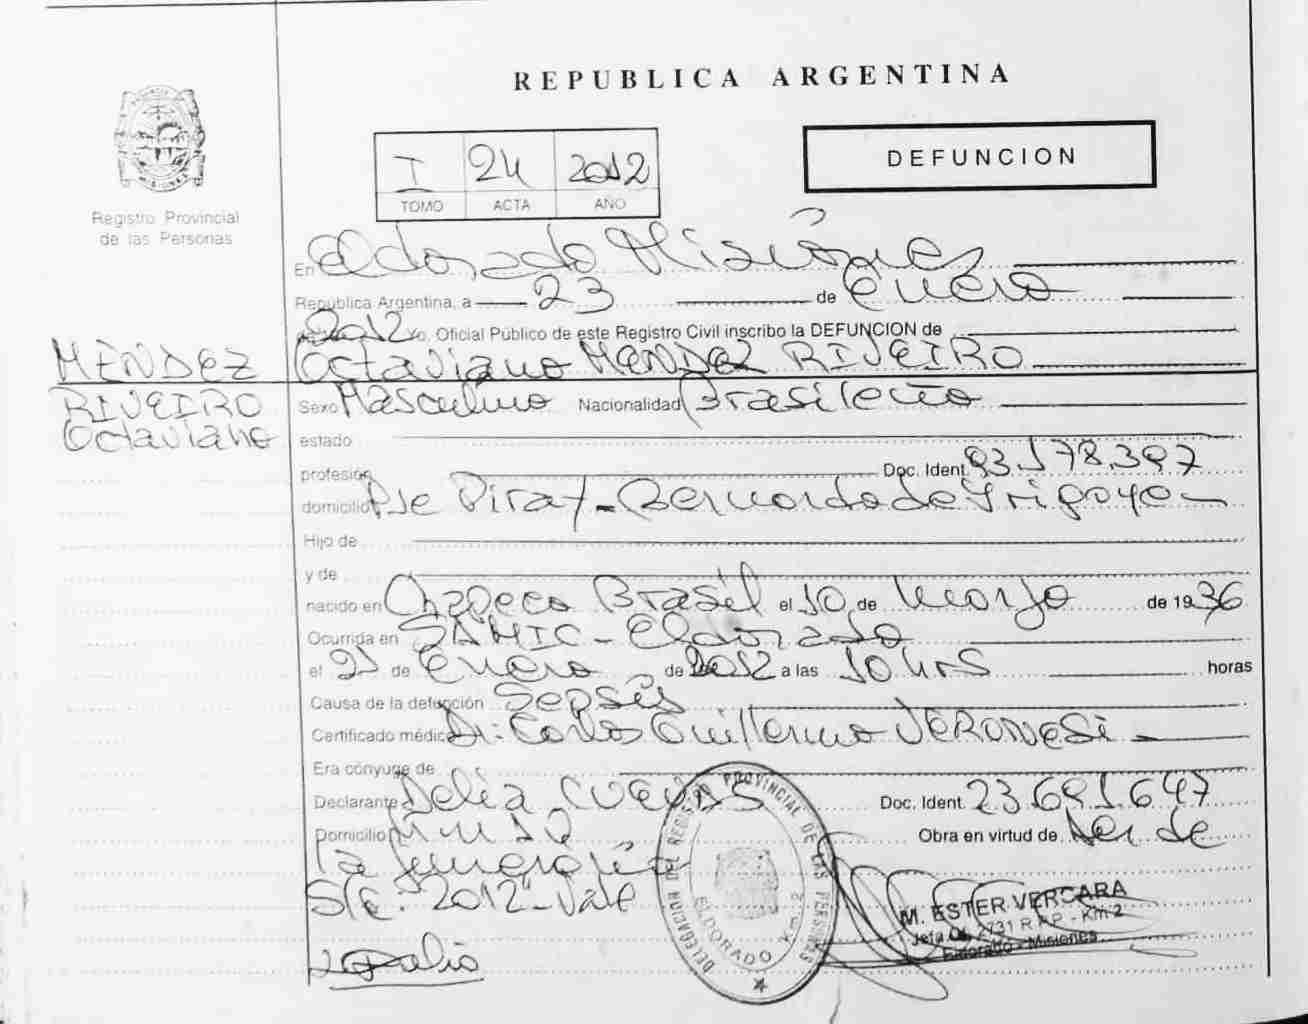 REPUBLICA ARGENTINA
I 24 2012
TOMO ACTA AÑO
DEFUNCION
PROVINCIA
MISIONES
Registro Provincial
de las Personas
En Eldorado Misiones
República Argentina, a 23 de Enero
2012 yo, Oficial Público de este Registro Civil inscribo la DEFUNCION de
MÉNDEZ
RIVEIRO
Octaviano
Octaviano MENDEZ RIVEIRO
Sexo Masculino Nacionalidad Brasileña
estado
profesión Doc. Ident. 93.178.397
domicilio Pje Piray - Bernardo de Irigoyen
Hijo de
y de
nacido en Chapeco Brasil el 10 de Marzo de 1936
Ocurrida en SAMIC - Eldorado
el 21 de Enero de 2012 a las 10 hrs horas
Causa de la defunción Sepsis
Certificado médico Dr: Carlos Guillermo VERONESI
Era cónyuge de
Declarante Delia CUEVAS Doc. Ident. 23.691.647
Domicilio Obra en virtud de Ser de
la funeraria
S/c: 2012 - Vale
DELEGACION DEL REGISTRO PROVINCIAL DE LAS PERSONAS
ELDORADO Km. 2
M. ESTER VERGARA
Jefa Of. 2731 R.P.P - Km 2
Eldorado - Misiones